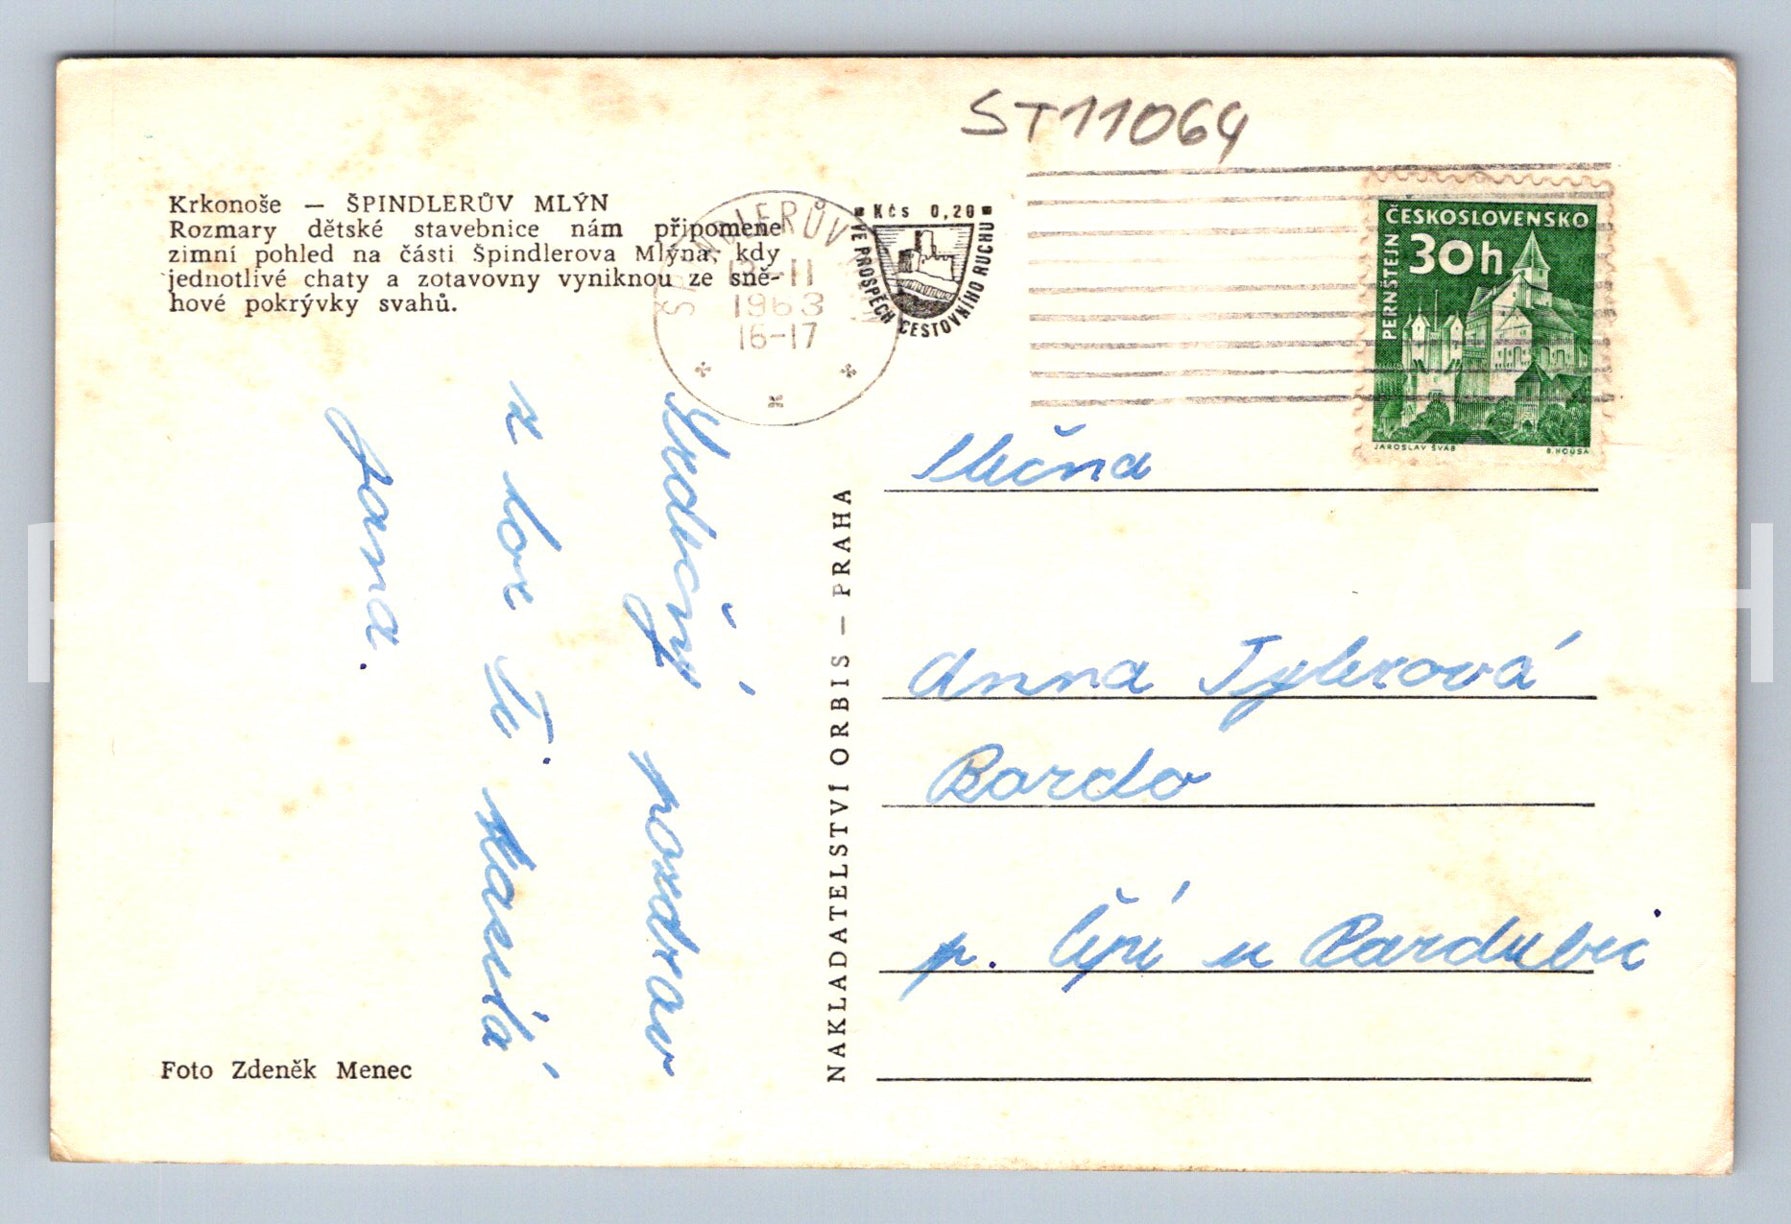 ST11064
Krkonoše — ŠPINDLERŮV MLÝN
Rozmary dětské stavebnice nám připomene
zimní pohled na části Špindlerova Mlýna, kdy
jednotlivé chaty a zotavovny vyniknou ze sně-
hové pokrývky svahů.
ŠPINDLERŮV
12-11
1963
16-17
Kčs 0,20
VE PROSPĚCH CESTOVNÍHO RUCHU
ČESKOSLOVENSKO
30h
PERNŠTEJN
JAROSLAV ŠVÁB
B. HOUSA
Srdečný pozdrav
z hor Ti zasílá
Jana.
NAKLADATELSTVÍ ORBIS — PRAHA
Slečna
Anna
Bordo
p. Čepí u Pardubic
Foto Zdeněk Menec